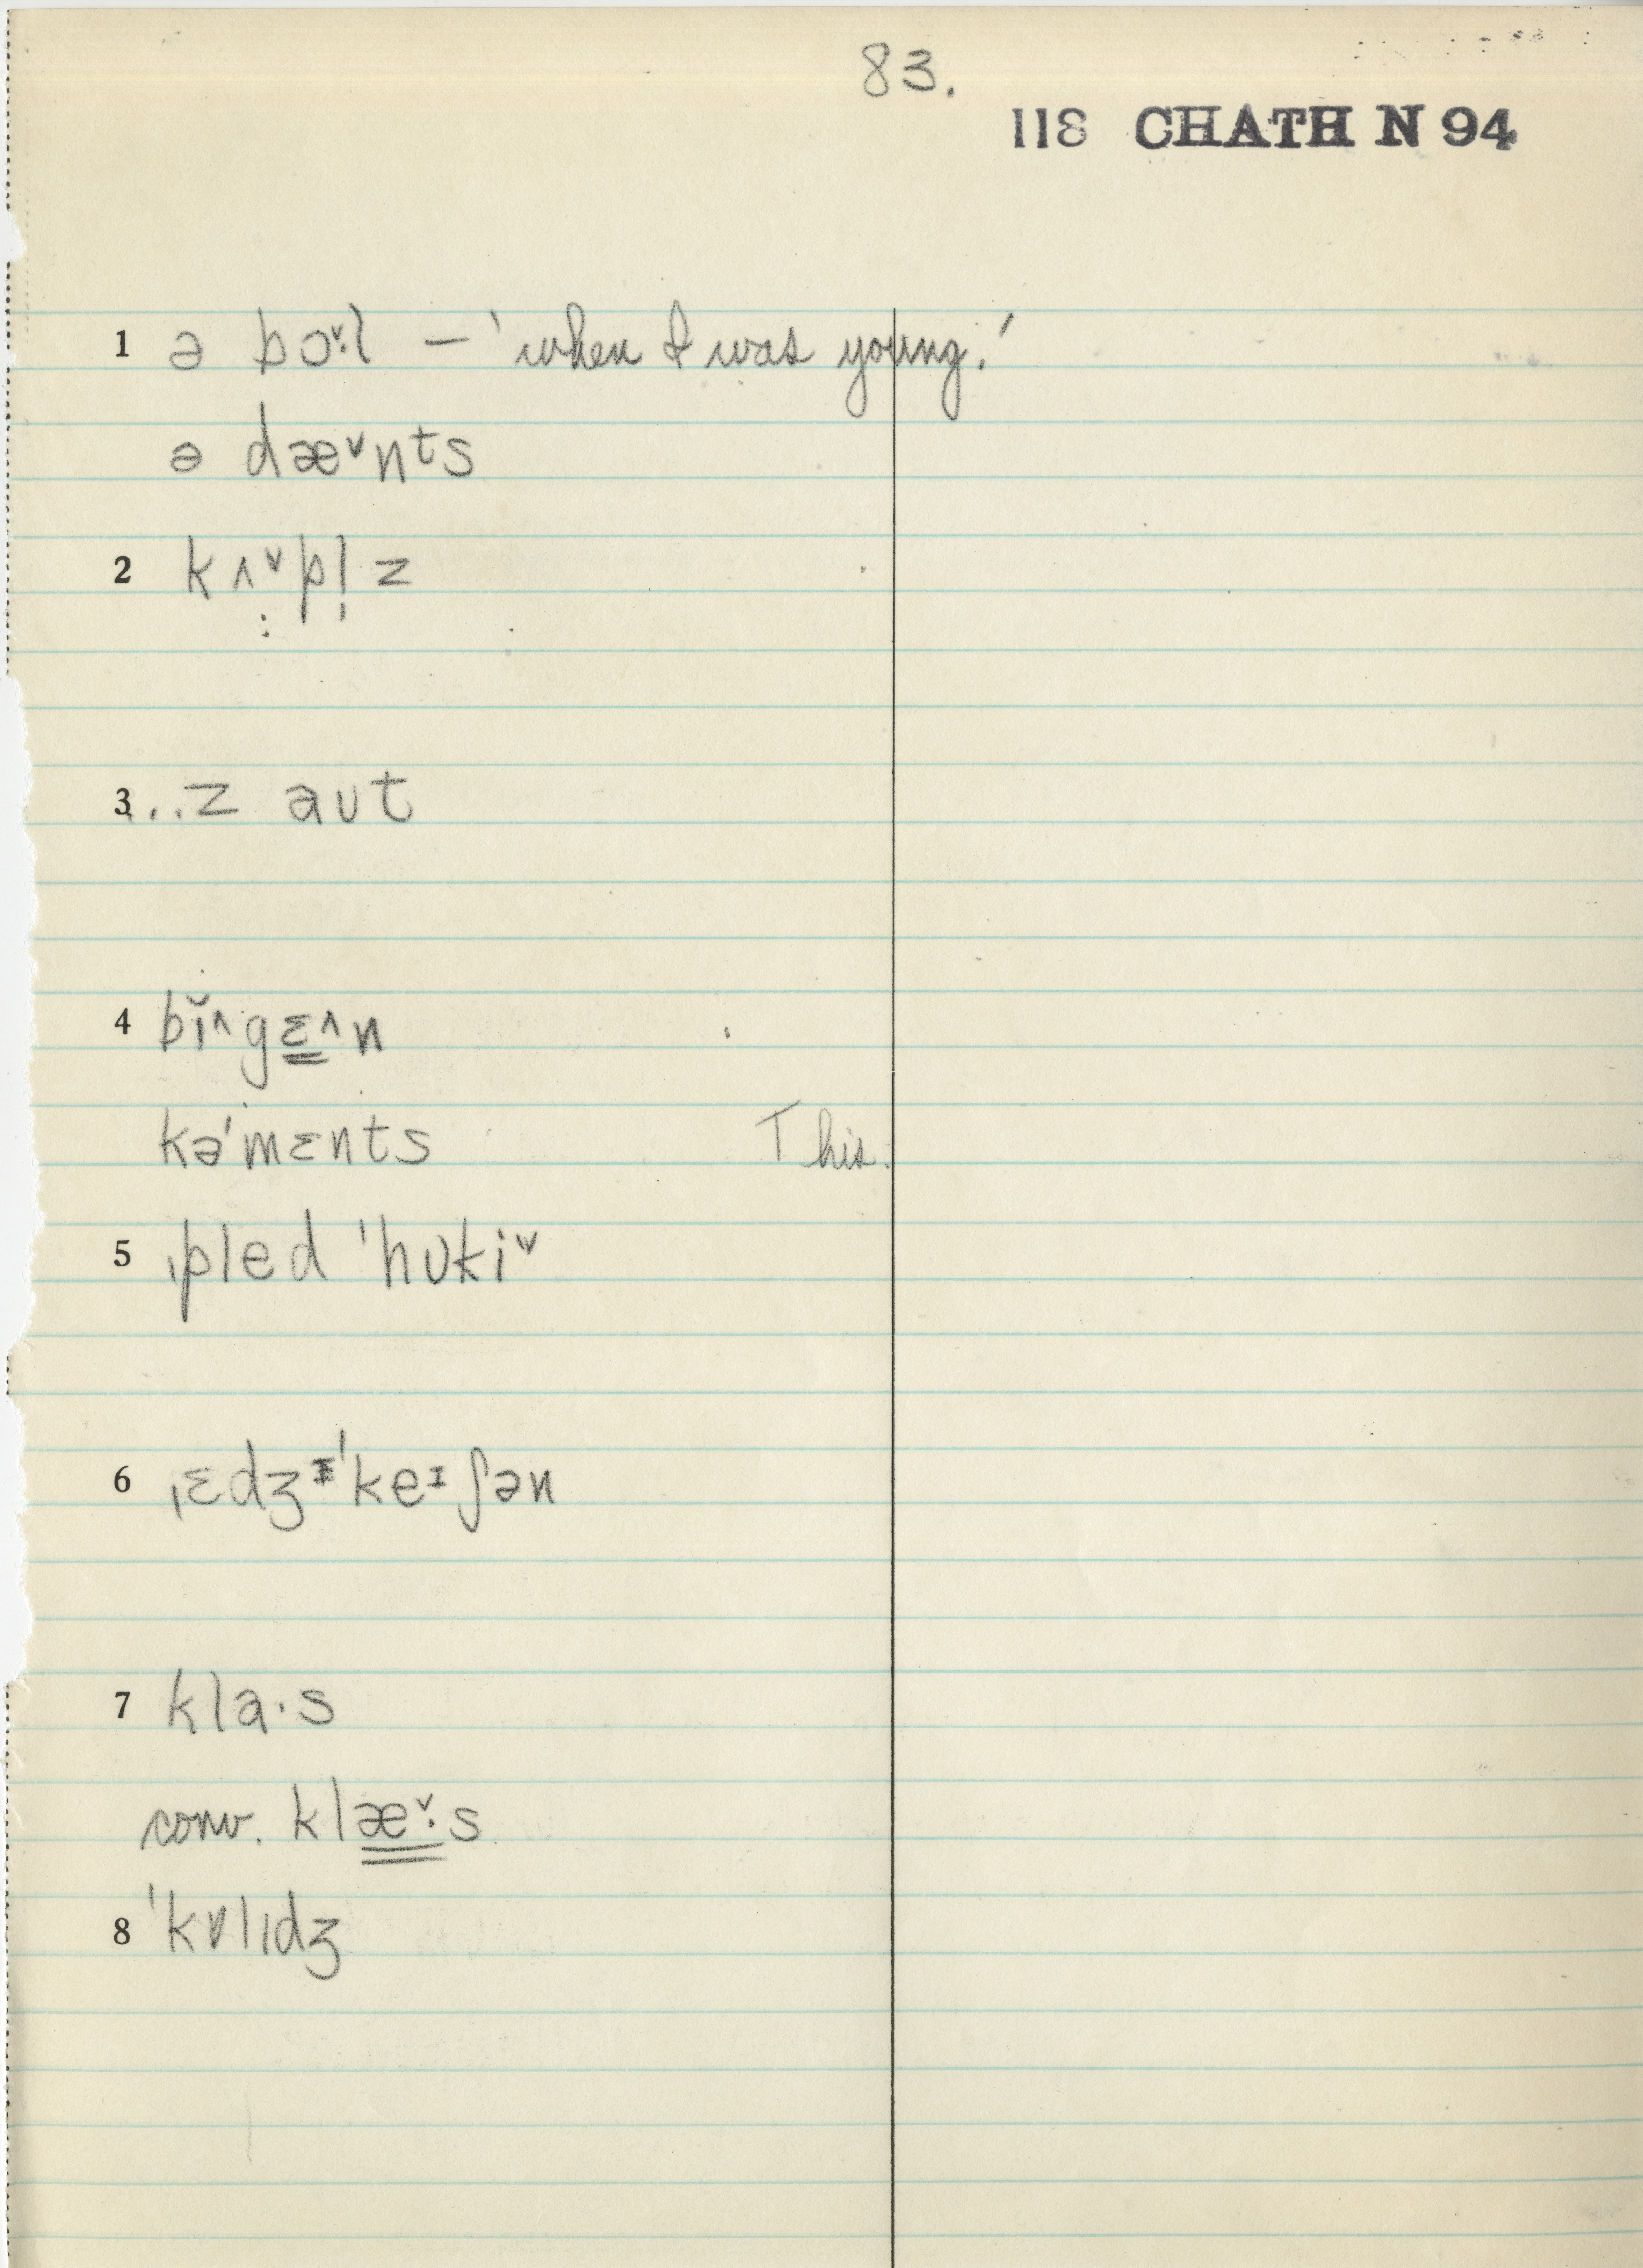 83.
118 CHATH N 94
1 ə bɔˇ·l – 'when I was young.'
ə dæˇnᵗs
2 kʌˇpl̩z
3 ...z aʊt
4 bĭ^gɛ^n
kə'mɛnts This.
5 ˌpled 'hʊkiˇ
6 ˌɛdʒᵻ'keᶦʃən
7 kla·s
conv. klæˇ·s
8 'kɒlɪdʒ